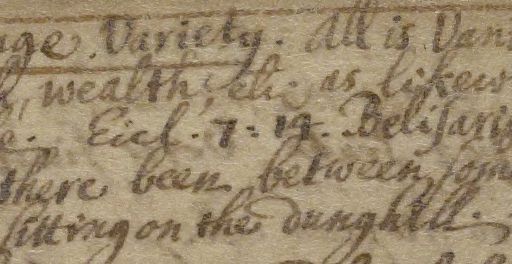 Variety. All is Van
wealth, etc. as likew
Eccl. 7: 14. Belisari
there been between som
sitting on the dunghill.